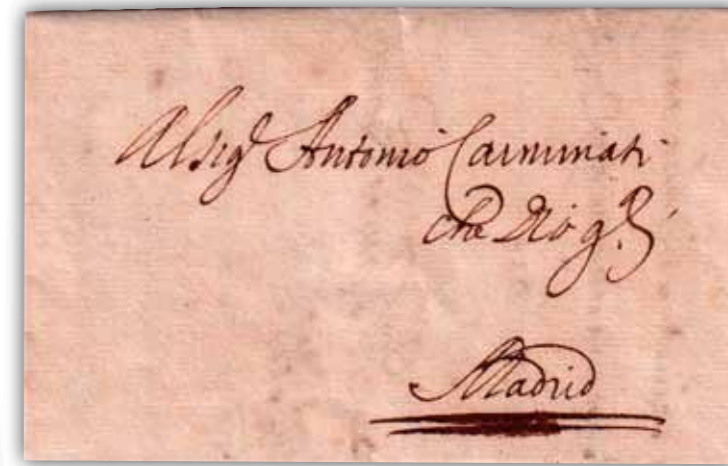 Al sig.r Antonio Carminati
che Dio g.
Madrid